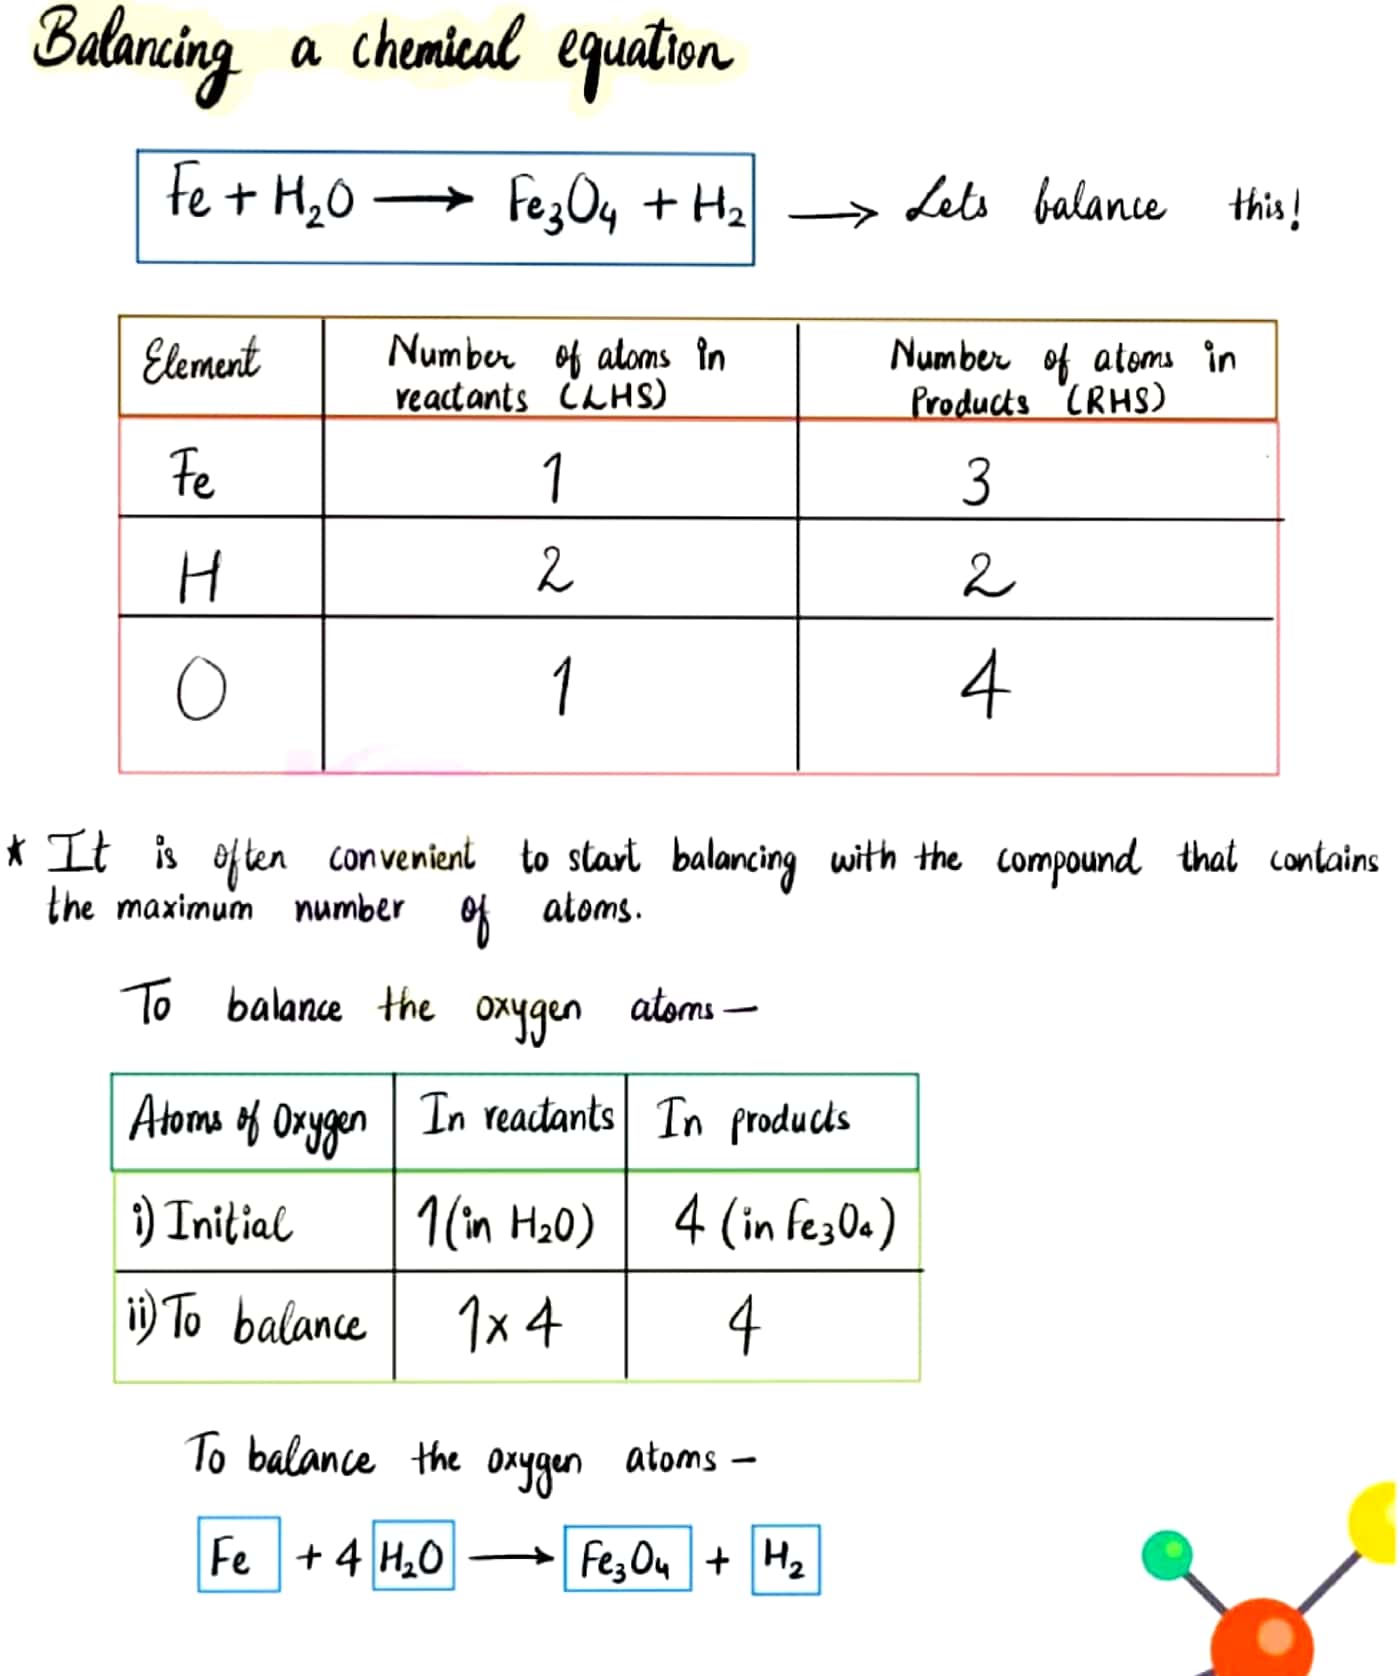 Balancing a chemical equation
Fe + H₂O ⟶ Fe₃O₄ + H₂ ⟶ Lets balance this!
Element
Number of atoms in
reactants (LHS)
Number of atoms in
Products (RHS)
Fe 1 3
H 2 2
O 1 4
* It is often convenient to start balancing with the compound that contains
the maximum number of atoms.
To balance the oxygen atoms —
Atoms of Oxygen In reactants In products
i) Initial 1 (in H₂O) 4 (in Fe₃O₄)
ii) To balance 1 x 4 4
To balance the oxygen atoms —
Fe + 4 H₂O ⟶ Fe₃O₄ + H₂